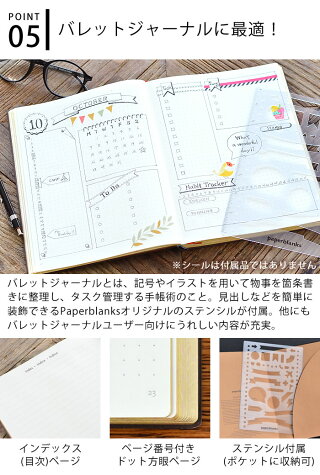 POINT
05
バレットジャーナルに最適！
OCTOBER
10
To Do
Habit Tracker
What
a wonderful
day!
paperblanks
※シールは付属品ではありません
バレットジャーナルとは、記号やイラストを用いて物事を箇条書
きに整理し、タスク管理する手帳術のこと。見出しなどを簡単に
装飾できるPaperblanksオリジナルのステンシルが付属。他にも
バレットジャーナルユーザー向けにうれしい内容が充実。
23
インデックス
(目次)ページ
ページ番号付き
ドット方眼ページ
ステンシル付属
(ポケットに収納可)